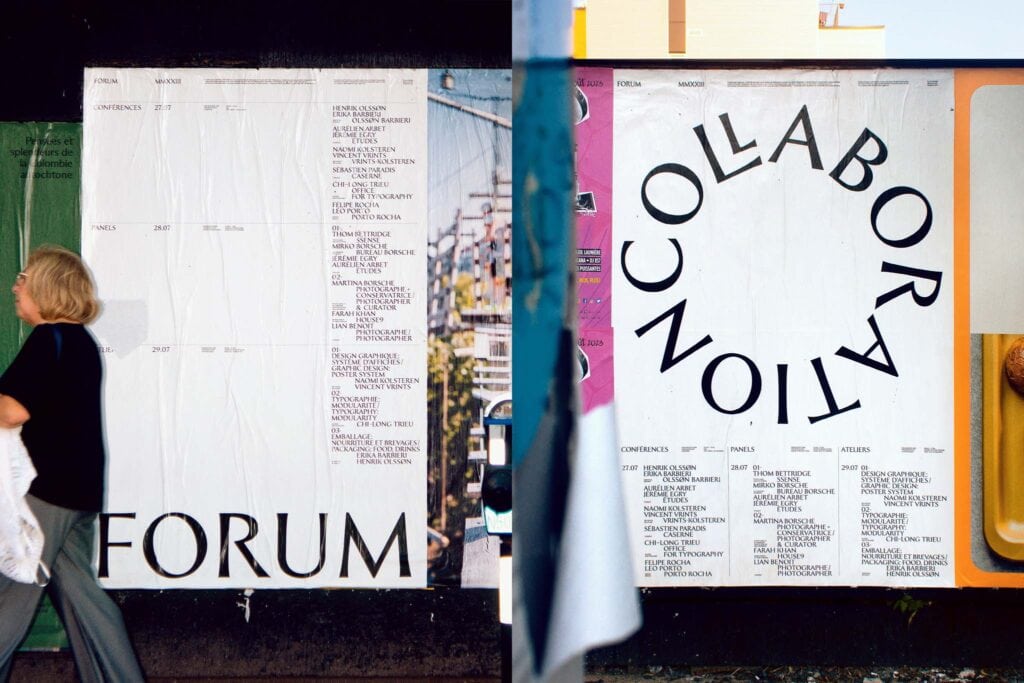 Pensées et
splendeurs de
la Colombie
autochtone.
FORUM MMXXIII
CONFÉRENCES 27.07
HENRIK OLSSØN
ERIKA BARBIERI
OLSSØN BARBIERI
AURÉLIEN ARBET
JÉRÉMIE EGRY
ÉTUDES
NAOMI KOLSTEREN
VINCENT VRINTS
VRINTS-KOLSTEREN
SÉBASTIEN PARADIS
CASERNE
CHI-LONG TRIEU
OFFICE
FOR TYPOGRAPHY
FELIPE ROCHA
LEO PORTO
PORTO ROCHA
PANELS 28.07
01-
THOM BETTRIDGE
SSENSE
MIRKO BORSCHE
BUREAU BORSCHE
JÉRÉMIE EGRY
AURÉLIEN ARBET
ÉTUDES
02-
MARTINA BORSCHE
PHOTOGRAPHE+
CONSERVATRICE/
PHOTOGRAPHER
& CURATOR
FARAH KHAN
HOUSE9
LIAN BENOIT
PHOTOGRAPHE/
PHOTOGRAPHER
29.07
01-
DESIGN GRAPHIQUE:
SYSTÈME D'AFFICHES/
GRAPHIC DESIGN:
POSTER SYSTEM
NAOMI KOLSTEREN
VINCENT VRINTS
02-
TYPOGRAPHIE:
MODULARITÉ/
TYPOGRAPHY:
MODULARITY
CHI-LONG TRIEU
03-
EMBALLAGE:
NOURRITURE ET BREVAGES/
PACKAGING: FOOD, DRINKS
ERIKA BARBIERI
HENRIK OLSSØN
FORUM
2023
2023
FORUM MMXXIII
COLLABORATION
CONFÉRENCES
27.07
HENRIK OLSSØN
ERIKA BARBIERI
OLSSØN BARBIERI
AURÉLIEN ARBET
JÉRÉMIE EGRY
ÉTUDES
NAOMI KOLSTEREN
VINCENT VRINTS
VRINTS-KOLSTEREN
SÉBASTIEN PARADIS
CASERNE
CHI-LONG TRIEU
OFFICE
FOR TYPOGRAPHY
FELIPE ROCHA
LEO PORTO
PORTO ROCHA
PANELS
28.07
01-
THOM BETTRIDGE
SSENSE
MIRKO BORSCHE
BUREAU BORSCHE
JÉRÉMIE EGRY
AURÉLIEN ARBET
ÉTUDES
02-
MARTINA BORSCHE
PHOTOGRAPHE+
CONSERVATRICE/
PHOTOGRAPHER
& CURATOR
FARAH KHAN
HOUSE9
LIAN BENOIT
PHOTOGRAPHE/
PHOTOGRAPHER
ATELIERS
29.07
01-
DESIGN GRAPHIQUE:
SYSTÈME D'AFFICHES/
GRAPHIC DESIGN:
POSTER SYSTEM
NAOMI KOLSTEREN
VINCENT VRINTS
02-
TYPOGRAPHIE:
MODULARITÉ/
TYPOGRAPHY:
MODULARITY
CHI-LONG TRIEU
03-
EMBALLAGE:
NOURRITURE ET BREVAGES/
PACKAGING: FOOD, DRINKS
ERIKA BARBIERI
HENRIK OLSSØN